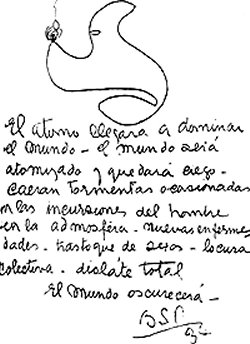 El atomo llegara a dominar
el mundo - el mundo será
atomizado y quedará ciego -
caeran tormentas ocasionadas
en las incursiones del hombre
en la admosféra - nuevas enferme
dades - trastoque de sexos - locura
colectiva - disláte total
El mundo oscurecerá -
BSP